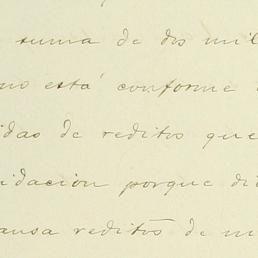 suma de dos mil
no está conforme
idas de reditos que
idación porque di
ausa reditos de m